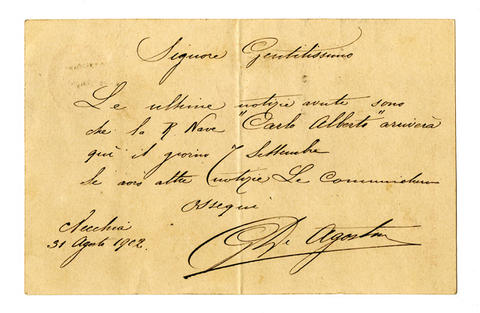 Signore Gentilissimo
Le ultime notizie avute sono
che la R Nave "Carlo Alberto" arriverà
quì il giorno 7 Settembre
Se avrò altre notizie Le comunicherò
Ossequi
31 Agosto 1902.
G De Agostini